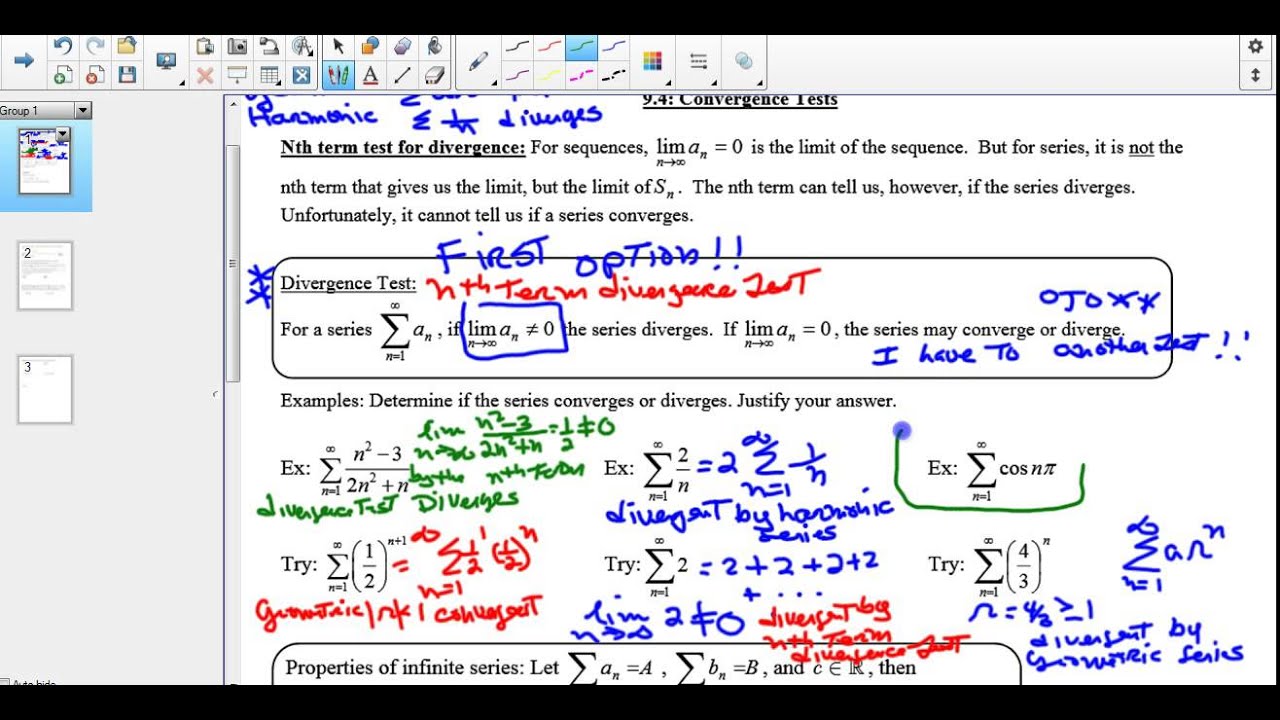 Group 1
1
2
3
9.4: Convergence Tests
Harmonic Σ 1/n diverges
Nth term test for divergence: For sequences, lim n→∞ aₙ = 0 is the limit of the sequence. But for series, it is not the
nth term that gives us the limit, but the limit of Sₙ. The nth term can tell us, however, if the series diverges.
Unfortunately, it cannot tell us if a series converges.
First option!!
Divergence Test: nth term divergence Test
OJO **
For a series ∞ Σ n=1 aₙ, if lim n→∞ aₙ ≠ 0 the series diverges. If lim n→∞ aₙ = 0, the series may converge or diverge.
I have to another test!!
Examples: Determine if the series converges or diverges. Justify your answer.
Ex: ∞ Σ n=1 n² − 3 / 2n² + n lim n→∞ n²−3 / 2n²+n = 1/2 ≠ 0
by the nth term
divergence Test Diverges
Ex: ∞ Σ n=1 2/n = 2 ∞ Σ n=1 1/n
divergent by harmonic
series
Ex: ∞ Σ n=1 cos nπ
Try: ∞ Σ n=1 (1/2)ⁿ⁺¹ = ∞ Σ n=1 1/2¹ (1/2)ⁿ
Geometric |r|<1 convergent
Try: ∞ Σ n=1 2 = 2 + 2 + 2 + 2
+ ...
lim n→∞ 2 ≠ 0 divergent by
nth Term
divergence test
Try: ∞ Σ n=1 (4/3)ⁿ ∞ Σ n=1 arⁿ
r = 4/3 ≥ 1
divergent by
geometric series
Properties of infinite series: Let Σ aₙ = A, Σ bₙ = B, and c ∈ ℝ, then